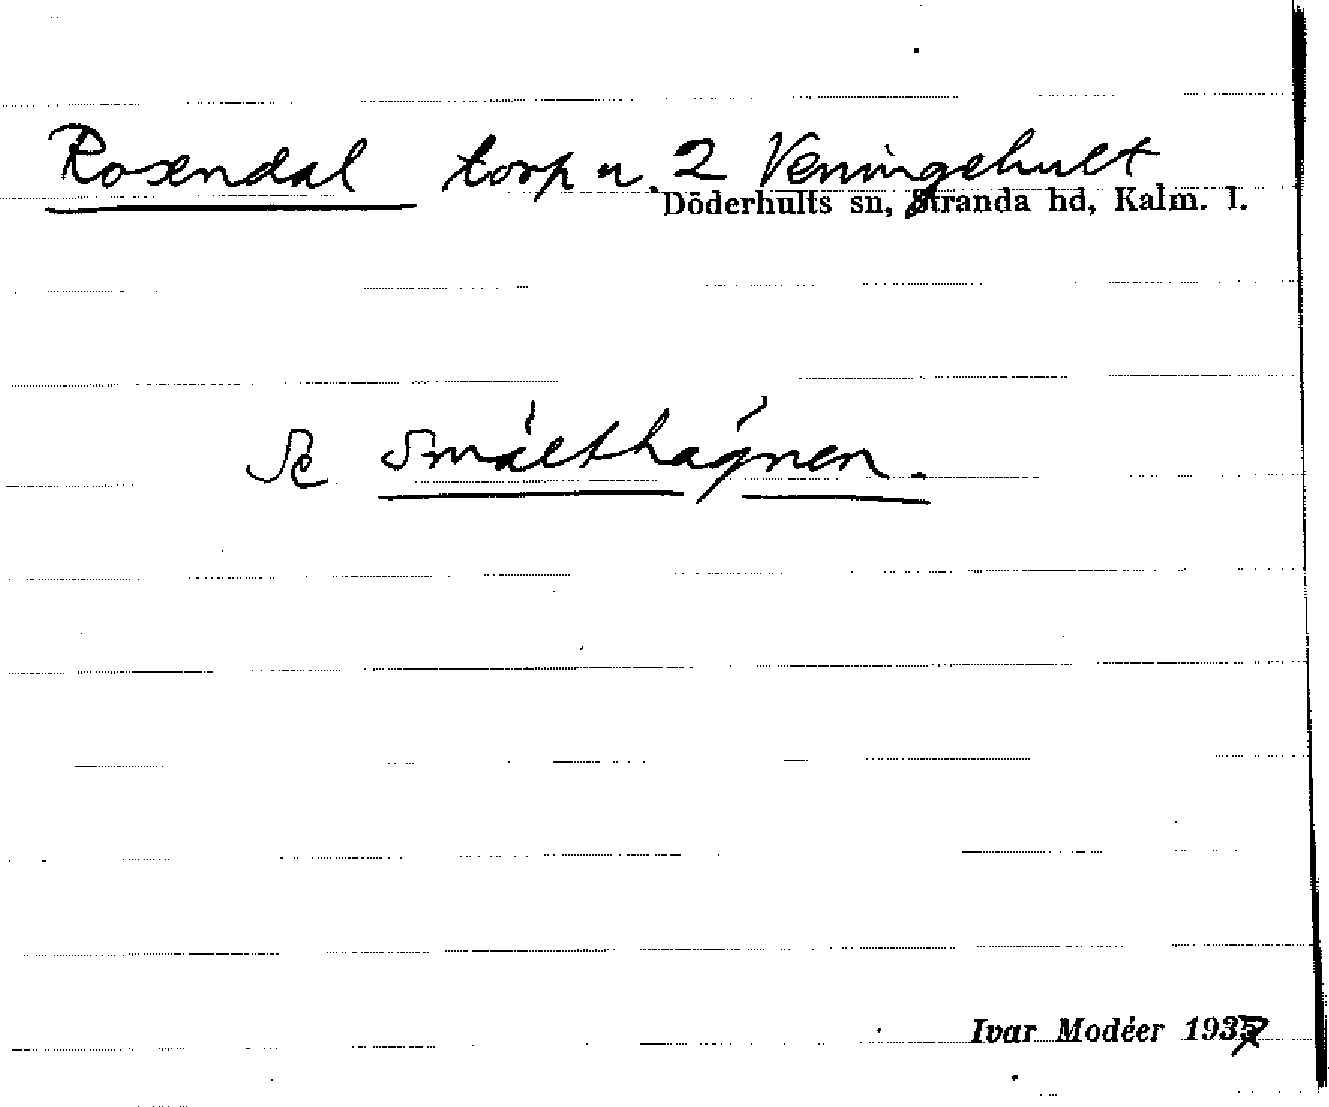 Rosendal torp u. 2 Veningehult
Döderhults sn, Stranda hd, Kalm. l.
Se Smålthågnen.
Ivar Modéer 1937